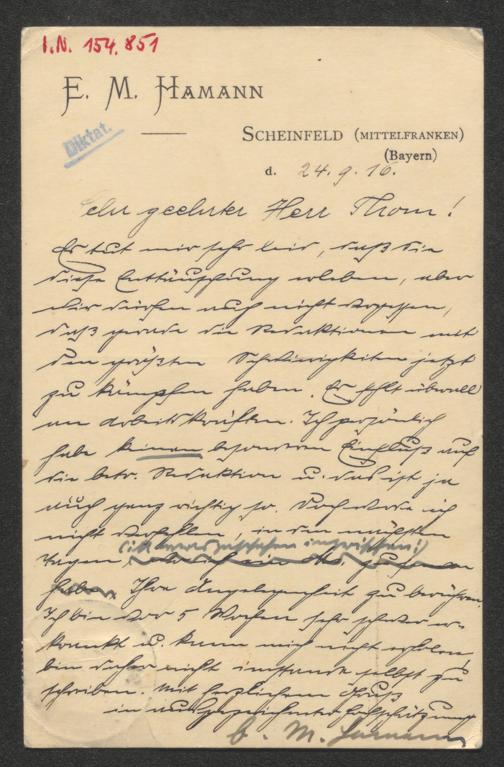 I.N. 154.851
E. M. HAMANN
Diktat.
SCHEINFELD (MITTELFRANKEN)
(Bayern)
d. 24.9.16.
Sehr geehrter Herr Thom!
Es tut mir sehr leid, daß Sie
diese Enttäuschung erleben, aber
wir dürfen auch nicht vergessen,
daß gerade die Redaktionen mit
den größten Schwierigkeiten jetzt
zu kämpfen haben. Es fehlt überall
an Arbeitskräften. Ich persönlich
habe keinen besonderen Einfluß auf
die betr. Redaktion u. das ist ja
auch ganz richtig so. Doch werde ich
nicht verfehlen in den nächsten
(ist inzwischen!)
Tagen,
Ihre Angelegenheit zu berühren.
Ich bin vor 5 Wochen sehr schwer er-
krankt u. kann mich nicht erholen,
bin daher nicht imstande selbst zu
schreiben. Mit herzlichem Gruß
in ausgezeichneter Hochschätzung
E. M. Hamann